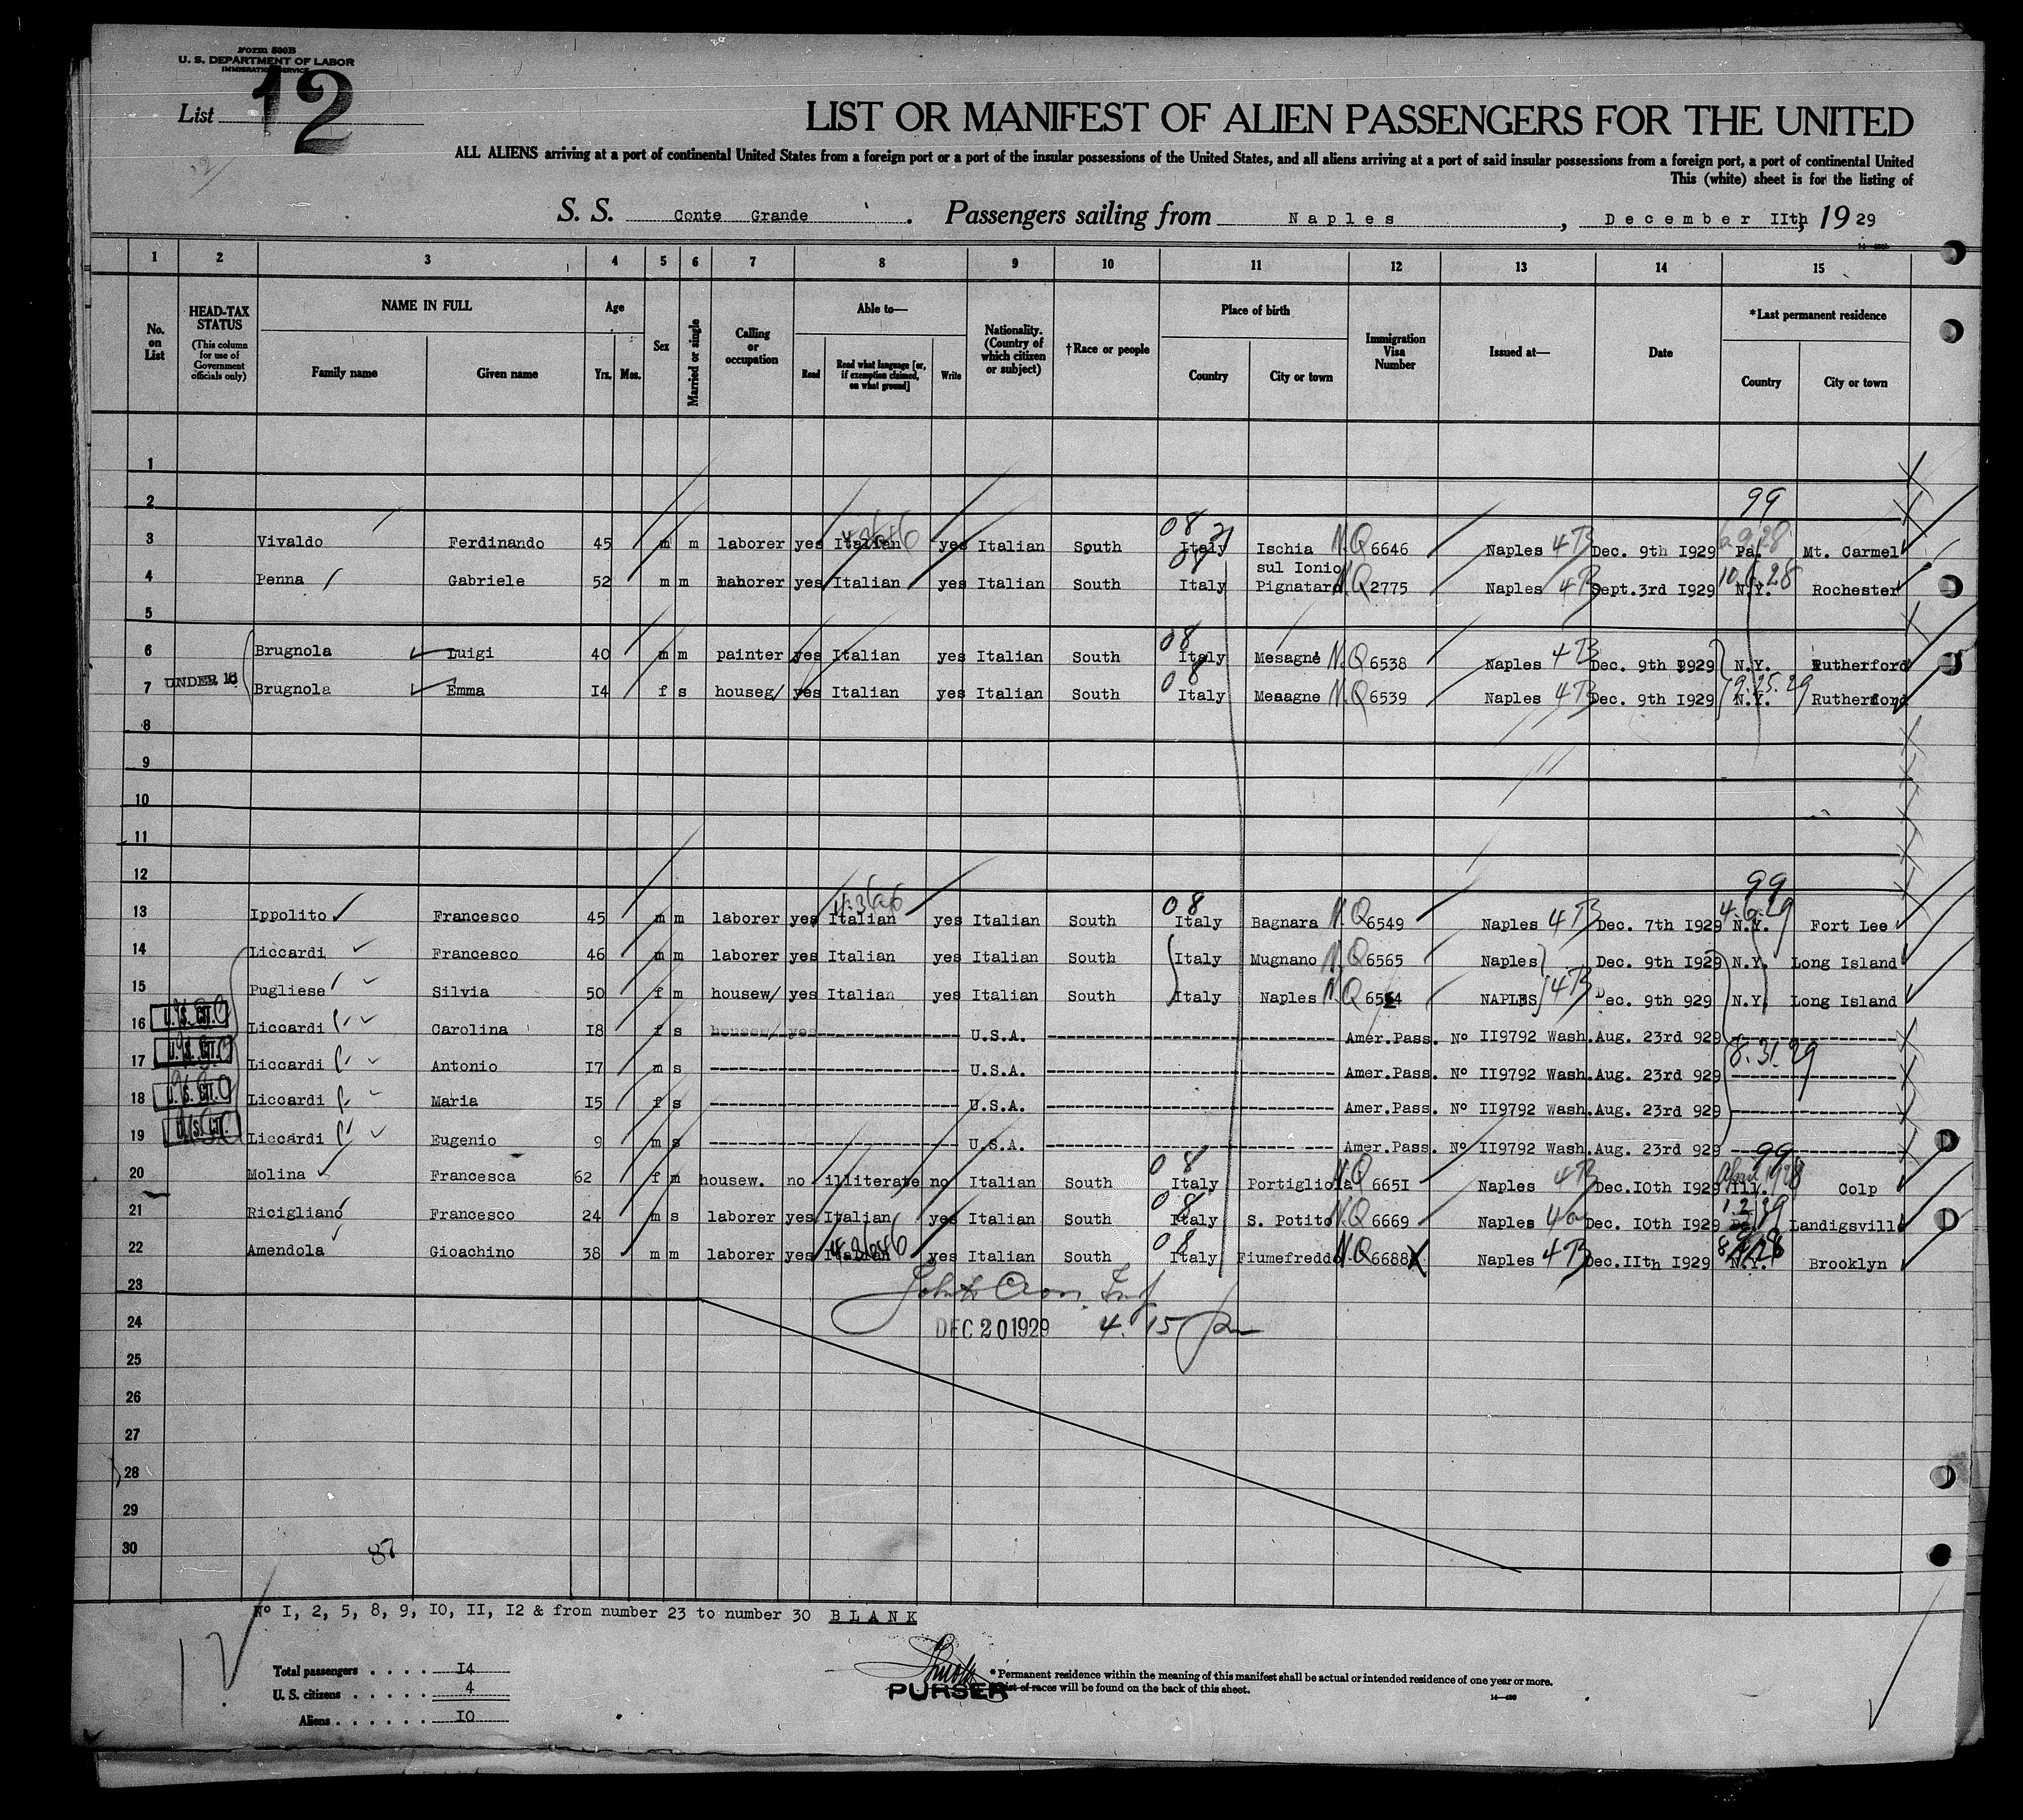 Form 500B
U. S. DEPARTMENT OF LABOR
IMMIGRATION SERVICE
List 12
LIST OR MANIFEST OF ALIEN PASSENGERS FOR THE UNITED
ALL ALIENS arriving at a port of continental United States from a foreign port or a port of the insular possessions of the United States, and all aliens arriving at a port of said insular possessions from a foreign port, a port of continental United
This (white) sheet is for the listing of
S. S. Conte Grande. Passengers sailing from Naples, December IIth, 1929
1 2 3 4 5 6 7 8 9 10 11 12 13 14 15
No. on List
HEAD-TAX STATUS (This column for use of Government officials only)
NAME IN FULL
Family name Given name
Age
Yrs. Mos.
Sex
Married or single
Calling or occupation
Able to—
Read Read what language [or, if exemption claimed, on what ground] Write
Nationality. (Country of which citizen or subject)
†Race or people
Place of birth
Country City or town
Immigration Visa Number
Issued at—
Date
*Last permanent residence
Country City or town
1
2 99
3 Vivaldo Ferdinando 45 m m laborer yes Italian yes Italian South 08 Italy Ischia N.Q 6646 Naples 4B Dec. 9th I929 Pa. Mt. Carmel
sul Ionio
4 Penna Gabriele 52 m m laborer yes Italian yes Italian South Italy Pignataro N.Q 2775 Naples 4B Sept.3rd I929 N.Y. Rochester
5
6 Brugnola Luigi 40 m m painter yes Italian yes Italian South 08 Italy Mesagne N.Q 6538 Naples 4B Dec. 9th I929 N.Y. Rutherford
7 UNDER 16 Brugnola Emma I4 f s houseg/ yes Italian yes Italian South 08 Italy Mesagne N.Q 6539 Naples 4B Dec. 9th I929 9.25.29 N.Y. Rutherford
8
9
10
11
12 99
13 Ippolito Francesco 45 m m laborer yes Italian yes Italian South 08 Italy Bagnara N.Q 6549 Naples 4B Dec. 7th I929 4.6.29 N.Y. Fort Lee
14 Liccardi Francesco 46 m m laborer yes Italian yes Italian South Italy Mugnano N.Q 6565 Naples Dec. 9th I929 N.Y. Long Island
15 Pugliese Silvia 50 f m housew/ yes Italian yes Italian South Italy Naples N.Q NAPLES 4B Dec. 9th 929 N.Y. Long Island
16 U. S. CIT. Liccardi Carolina I8 f s housew/ yes U.S.A. Amer.Pass. Nº II9792 Wash. Aug. 23rd 929
17 U. S. CIT. Liccardi Antonio I7 m s U.S.A. Amer.Pass. Nº II9792 Wash. Aug. 23rd 929 8.31.29
18 U. S. CIT. Liccardi Maria I5 f s U.S.A. Amer.Pass. Nº II9792 Wash. Aug. 23rd 929
19 U. S. CIT. Liccardi Eugenio 9 m s U.S.A. Amer.Pass. Nº II9792 Wash. Aug. 23rd 929 99
20 Molina Francesca 62 f m housew. no illiterate no Italian South 08 Italy Portigliola N.Q 665I Naples 4B Dec.I0th I929 April 1928 Ill. Colp
21 Ricigliano Francesco 24 m s laborer yes Italian yes Italian South 08 Italy S. Potito N.Q 6669 Naples 4a Dec. I0th I929 Landigsville
22 Amendola Gioachino 38 m m laborer yes Italian yes Italian South 08 Italy Fiumefreddo N.Q 6688 Naples 4B Dec.IIth I929 N.Y. Brooklyn
23
24 DEC 20 1929 4.15 pm
25
26
27
28
29
30
87
Nº I, 2, 5, 8, 9, I0, II, I2 & from number 23 to number 30 BLANK
12
Total passengers . . . . I4
U. S. citizens . . . . . 4
Aliens . . . . . . I0
PURSER
* Permanent residence within the meaning of this manifest shall be actual or intended residence of one year or more.
List of races will be found on the back of this sheet.